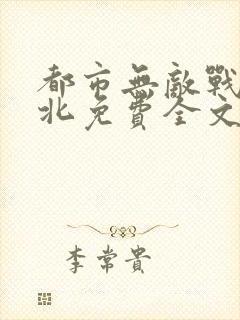 都市無敵戰
北免費全文
李常貴